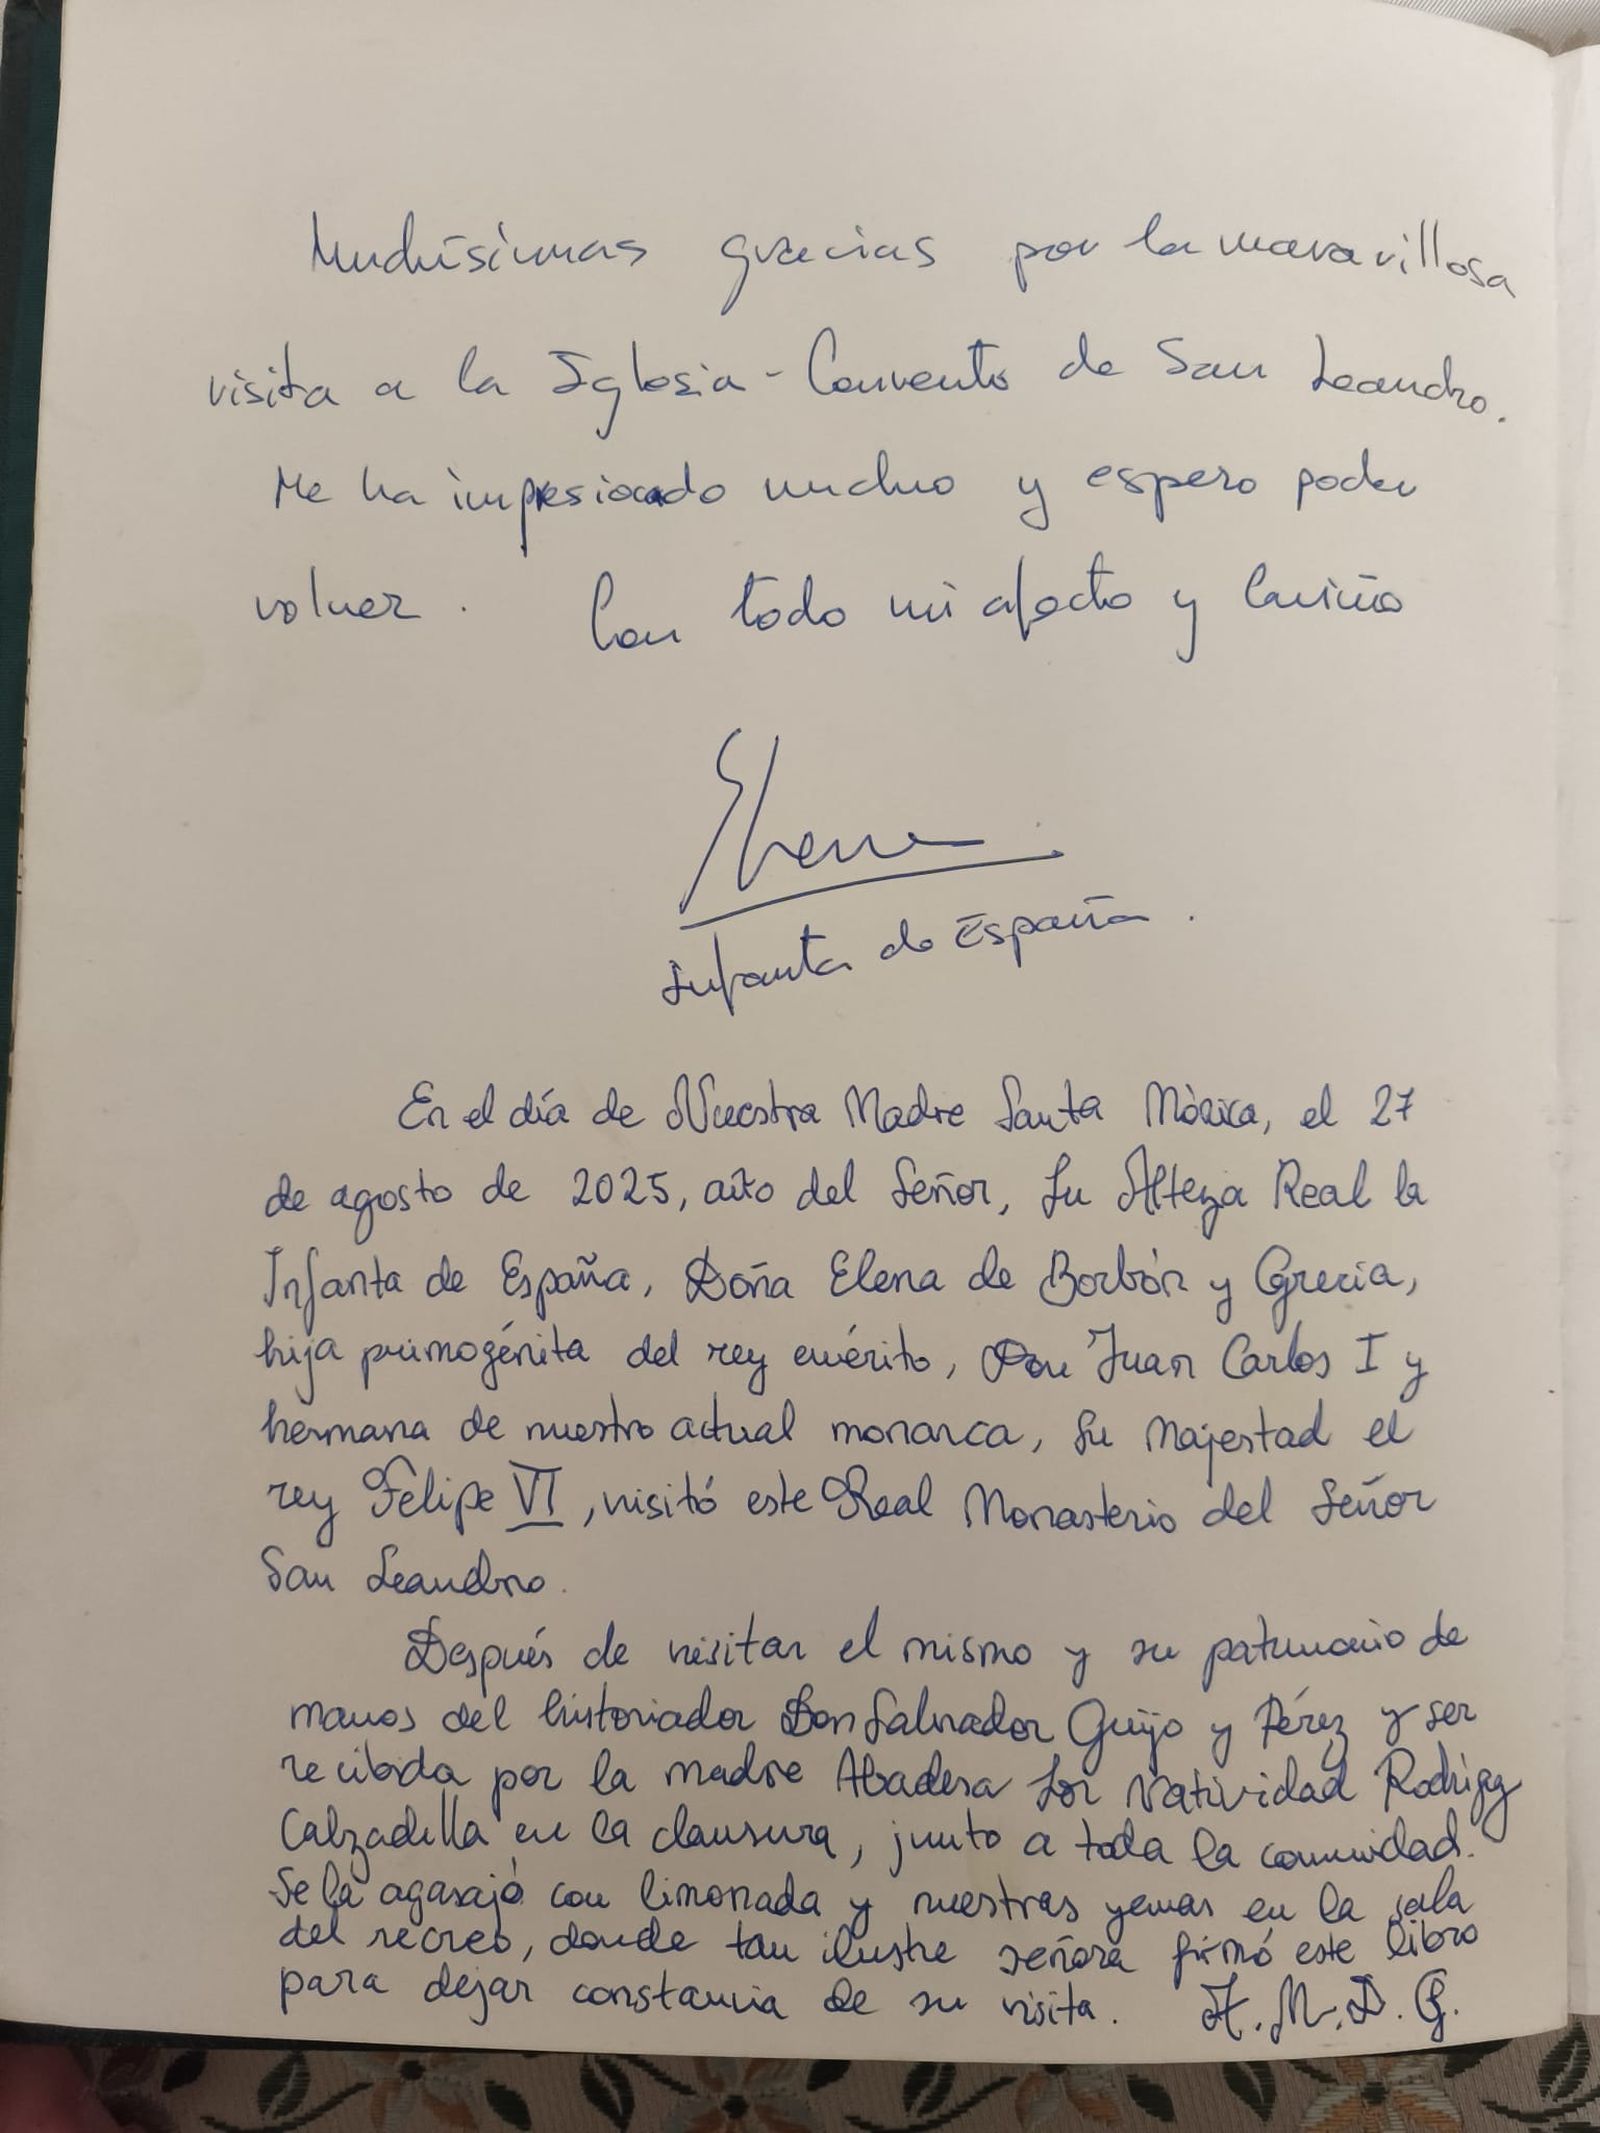 Muchísimas gracias por la maravillosa
visita a la Iglesia - Convento de San Leandro.
Me ha impresionado mucho y espero poder
volver. Con todo mi afecto y cariño
Elena
Infanta de España.
En el día de Nuestra Madre Santa Mónica, el 27
de agosto de 2025, año del Señor, Su Alteza Real la
Infanta de España, Doña Elena de Borbón y Grecia,
hija primogénita del rey emérito, Don Juan Carlos I y
hermana de nuestro actual monarca, Su Majestad el
rey Felipe VI, visitó este Real Monasterio del Señor
San Leandro.
Después de visitar el mismo y su patrimonio de
manos del historiador Don Salvador Guijo y Pérez y ser
recibida por la madre Abadesa Sor Natividad
Calzadilla en la clausura, junto a toda la comunidad.
Se la agasajó con limonada y nuestras yemas en la sala
del recreo, donde tan ilustre señora firmó este libro
para dejar constancia de su visita. A.M.D.G.